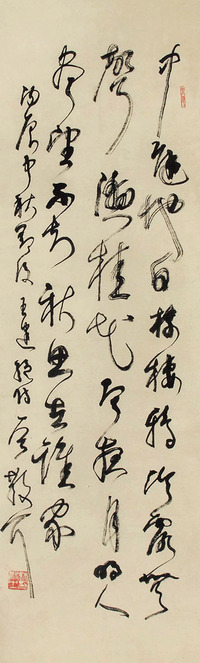 中庭地白樹棲鴉冷露無
聲濕桂花今夜月明人
盡望不知秋思在誰家
中秋王建